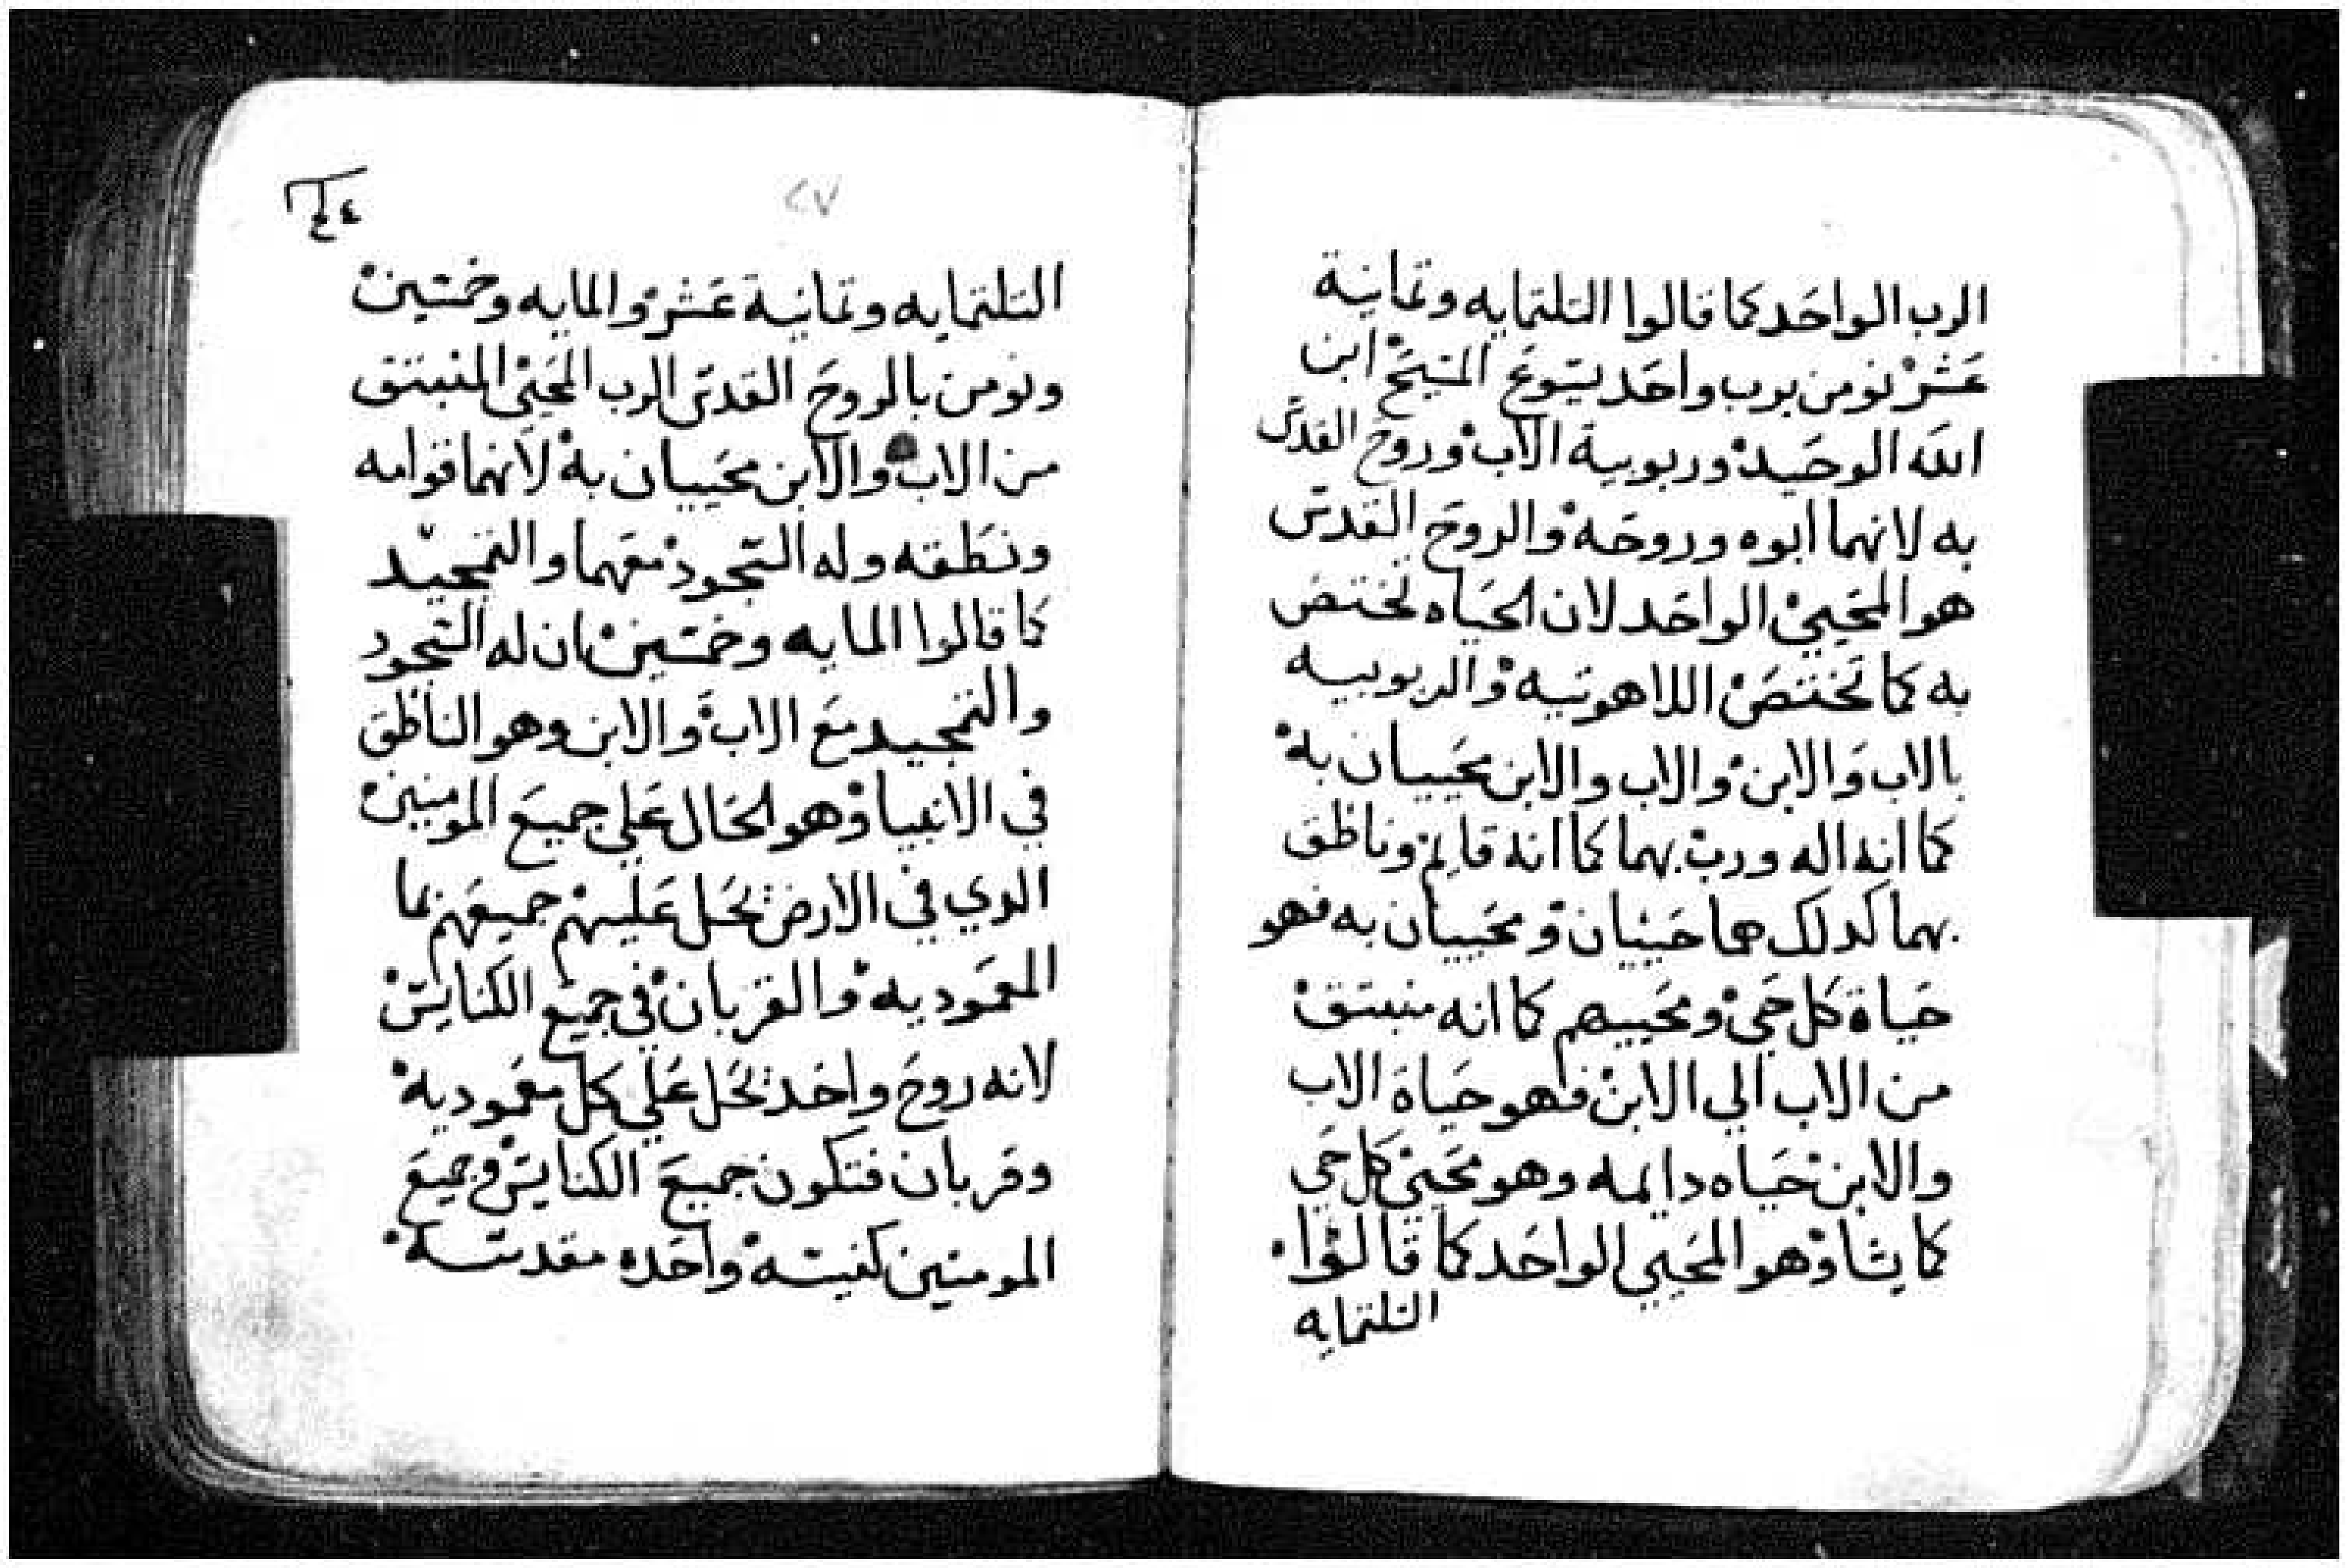 الرب الواحد كما قالوا التلتمايه وتمانية
عشر نومن برب واحد يسوع المسيح ابن
الله الوحيد وربوبية الاب وروح القدس
به لانهما ابوه وروحه والروح القدس
هو المحيي الواحد لان الحياه تختص
به كما تختص اللاهوتيه والربوبيه
بالاب والابن والاب والابن محييان به
كما انه اله ورب بهما كما انه قايم وناطق
بهما كدلك هما حييان ومحييان به فهو
حياة كل حي ومحييهم كما انه منبتق
من الاب الي الابن فهو حياة الاب
والابن حياه دايمه وهو محيي كل حي
كما يشا وهو المحيي الواحد كما قالوا
التلتمايه
٢٧
التلتمايه وتمانية عشر والمايه وخمسين
ونومن بالروح القدس الرب المحيي المنبتق
من الاب والابن محييان به لانهما قوامه
ونطقه وله السجود معهما والتمجيد
كما قالوا المايه وخمسين ان له السجود
والتمجيد مع الاب والابن وهو الناطق
في الانبيا وهو الحال علي جميع المومنين
الدي في الارض يحل عليهم جميعهم بما
المعموديه والقربان في جميع الكنايس
لانه روح واحد يحل علي كل معموديه
وقربان فتكون جميع الكنايس وجميع
المومنين كنيسه واحده مقدسه